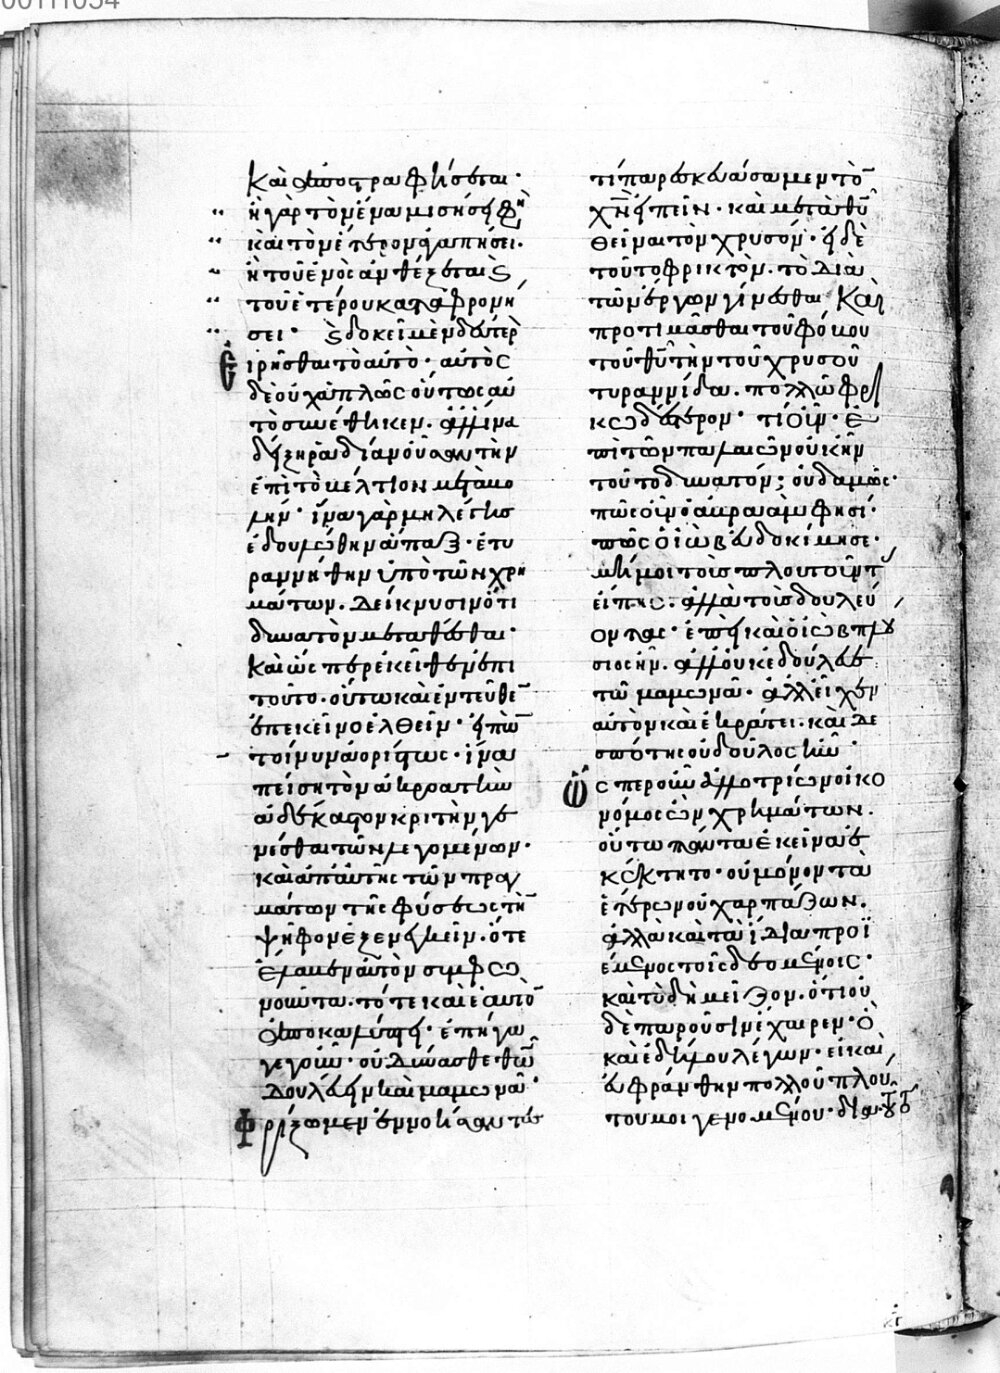 καὶ ἀποστραφήσεται·
ἢ γὰρ τὸν ἕνα μισήσει φη
καὶ τὸν ἕτερον ἀγαπήσει.
ἢ τοῦ ἑνὸς ἀνθέξεται καὶ
τοῦ ἑτέρου καταφρονή
σει· καὶ δοκεῖ μὲν δεύτερον
εἰρῆσθαι τὸ αὐτό· αὐτὸς
δὲ οὐχ ἁπλῶς οὕτως αὐ
τὸ συνέθηκεν. ἀλλ' ἵνα
δείξη ῥαδίαν οὖσαν τὴν
ἐπὶ τὸ βέλτιον μεταβο
λήν· ἵνα γὰρ μὴ λέγης
ἐδουλώθην ἅπαξ· ἐτυ
ραννήθην ὑπὸ τῶν χρη
μάτων. δείκνυσιν ὅτι
δυνατὸν μεταθέσθαι·
καὶ ὥσπερ ἐκεῖθεν ἐπὶ
τοῦτο. οὕτω καὶ ἐντεῦθεν
ἐπ' ἐκεῖνο ἐλθεῖν· εἰπὼν
τοίνυν ἀορίστως· ἵνα
πείση τὸν ἀκροατὴν
ἀδέκαστον κριτὴν γε
νέσθαι τῶν λεγομένων·
καὶ ἀπ' αὐτῆς τῶν πραγ
μάτων τῆς φύσεως τὴν
ψῆφον ἐξενεγκεῖν. ὅτε
ἔλαβεν αὐτὸν συμφω
νοῦντα. τότε καὶ ἑαυτὸν
ἀποκαλύπτει· ἐπήγα
γε γοῦν· οὐ δύνασθε θῶ
δουλεύειν καὶ μαμωνᾶ·
Φρίξωμεν ἐννοήσαντες
τί παρεσκευάσαμεν τὸν
χν εἰπεῖν· καὶ μετὰ θυ
θεῖναι τὸν χρυσόν· εἰ δὲ
τοῦτο φρικτὸν. τὸ διὰ
τῶν ἔργων γίνεσθαι καὶ
προτιμᾶσθαι τοῦ φόβου
τοῦ θυ τὴν τοῦ χρυσοῦ
τυραννίδα. πολλῶ φρι
κωδέστερον· τί οὖν· ἐ
πὶ τῶν παλαιῶν οὐκ ἦν
τοῦτο δυνατόν; οὐδαμῶς·
πῶς οὖν ὁ ἀβραάμ φησι·
πῶς ὁ ἰὼβ εὐδοκίμησε·
μή μοι τοὺς πλουτοῦντας
εἴπης. ἀλλὰ τοὺς δουλεύ
οντας· ἐπεὶ καὶ ὁ ἰὼβ πλού
σιος ἦν. ἀλλ' οὐκ ἐδούλευε
τῶ μαμωνᾶ· ἀλλ' εἶχεν
αὐτὸν καὶ ἐκράτει· καὶ δε
σπότης οὐ δοῦλος ἦν·
ὥσπερ οὖν ἀλλοτρίων οἰκο
νόμος ὢν χρημάτων.
οὕτω πάντα ἐκεῖνα ἐ
κέκτητο· οὐ μόνον τὰ
ἑτέρων οὐχ ἁρπάζων.
ἀλλὰ καὶ τὰ ἴδια προϊ
έμενος τοῖς δεομένοις·
καὶ τὸ δὴ μεῖζον. ὅτι οὐ
δὲ παροῦσιν ἔχαιρεν· ὃ
καὶ ἐδήλου λέγων· εἰ καὶ
εὐφράνθην πολλοῦ πλού
του μοι γενομένου· διὰ τοῦτο